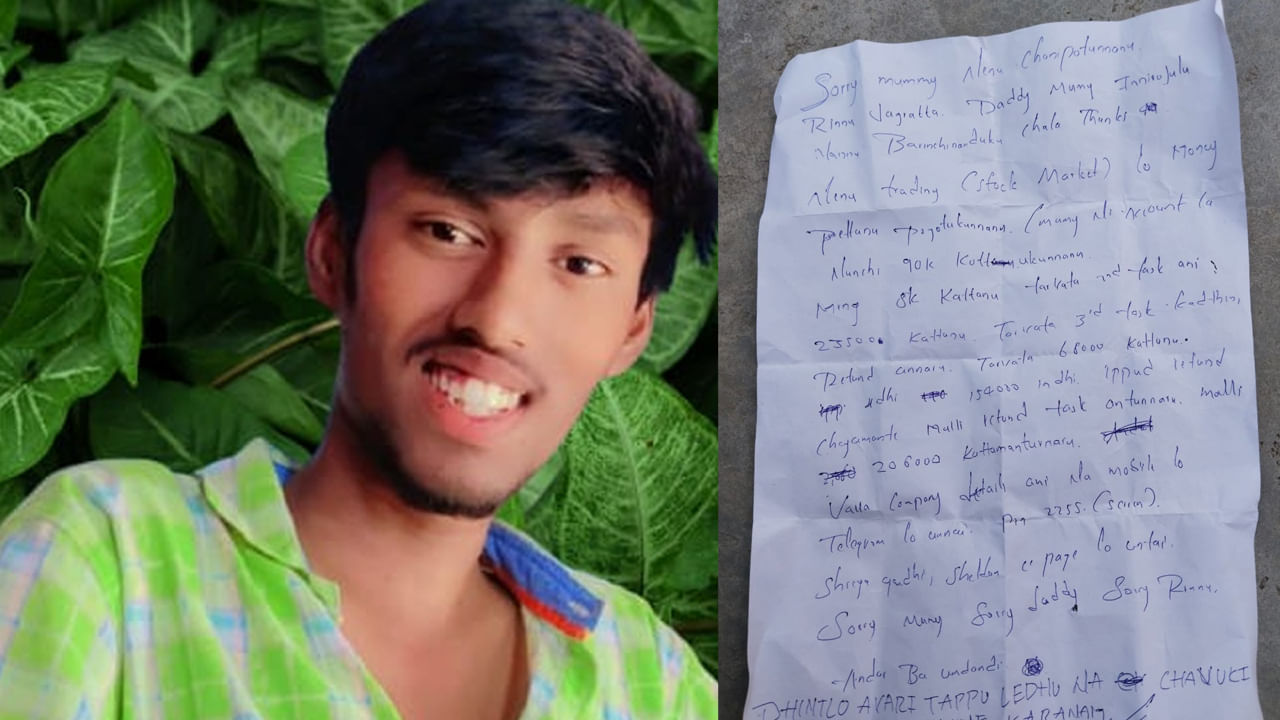 Sorry mummy Nenu Chanipotunnanu.
Rinnu Jagratta. Daddy Mumy Innirojulu
Nannu Barinchinanduku chala Thanks
Nenu trading (stock Market) lo Money
pogotukunnanu. (mumy
Nunchi 90k
8k Kattanu task ani
235000 Kattanu. Tarvata 3rd task
Refund annaru. Tarvata 68000 kattanu.
154000 indhi. ippud refund
cheyamante Malli refund task antunnaru. malli
206000 Kattamanturnaru.
Valla Company details ani Na mobile lo
Telegram lo unnai. Pin 2255. (screen).
page lo untai.
Sorry Mumy Sorry daddy Sorry Rinnu.
-Andar Ba undandi
DHINILO AVARI TAPPU LEDHU NA CHAVUKI
KARANAM